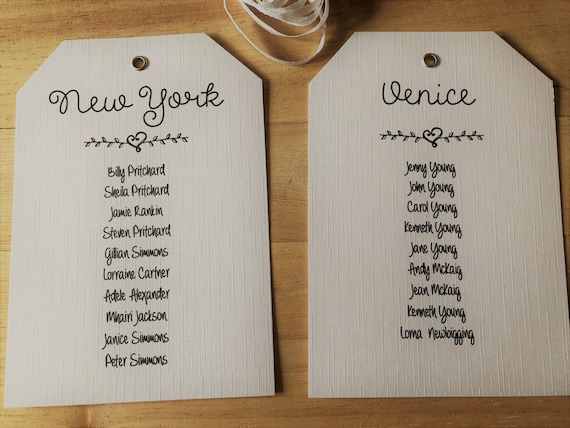 New York
Billy Pritchard
Sheila Pritchard
Jamie Rankin
Steven Pritchard
Gillian Simmons
Lorraine Cartner
Adele Alexander
Mhairi Jackson
Janice Simmons
Peter Simmons
Venice
Jenny Young
John Young
Carol Young
Kenneth Young
Jane Young
Andy McKaig
Jean McKaig
Kenneth Young
Lorna Newbigging